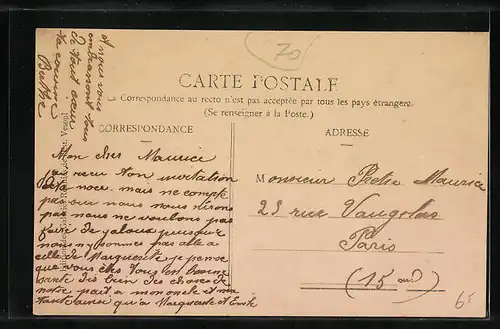 70
CARTE POSTALE
La Correspondance au recto n'est pas acceptée par tous les pays étrangers.
(Se renseigner à la Poste.)
CORRESPONDANCE
ADRESSE
Mon cher Maurice
jai recu ton invitation
de ta noce. mais ne compte
pas sur nous nous nirons
pas nous ne voulons pas
faire de jaloux puisque
nous ny sommes pas allé a
celle de Marguerite je pense
que vous êtes tous en bonne
santé dis bien des choses de
notre part a mon oncle et ma
tante ainsi qu'a Marguerite et Emile
et nous vous
embrassons tous
de tout cœur
ta cousine
Monsieur Maurice
23 rue Vaugelas
Paris
(15 ard)
65
Vesoul